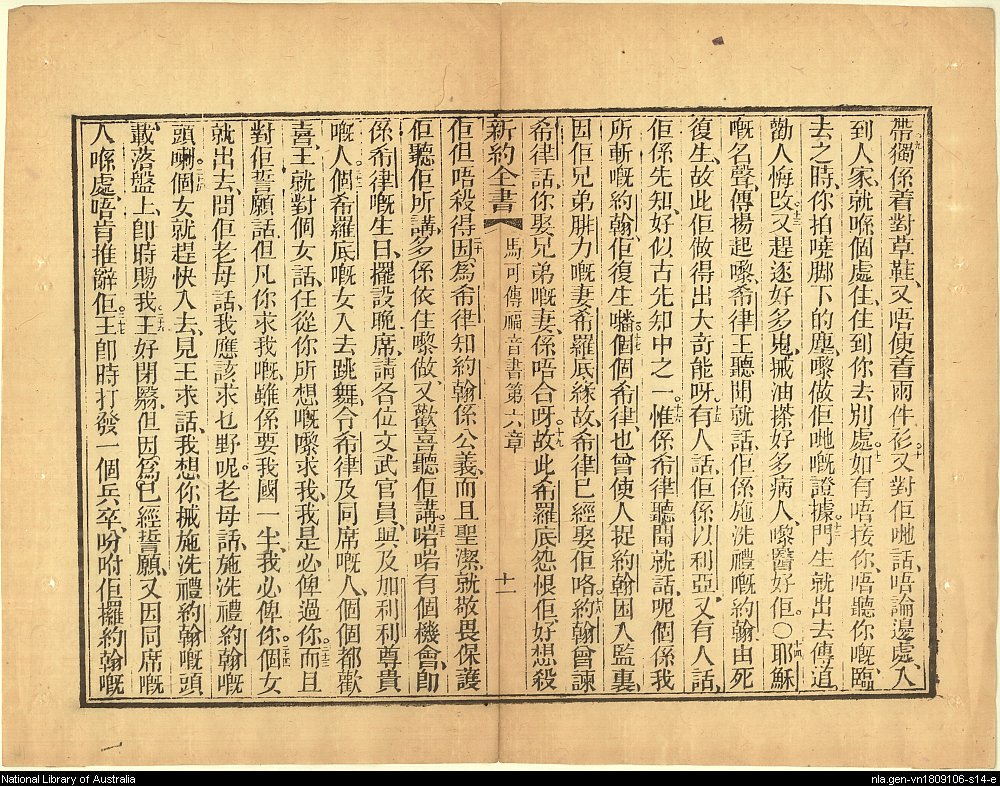 帶、獨係着對草鞋、又唔使着兩件衫、又對佢哋話、唔論邊處、入
到人家、就喺個處住、住到你去別處、如有唔接你、唔聽你嘅、臨
去之時、你拍嘵脚下的塵、嚟做佢哋嘅證據、門生就出去傳道、
勸人悔改、又趕逐好多鬼、搣油搽好多病人、嚟醫好佢。〇耶穌
嘅名聲、傳揚起嚟、希律王聽聞就話、佢係施洗禮嘅約翰由死
復生、故此佢做得出大奇能呀、有人話、佢係以利亞、又有人話、
佢係先知、好似古先知中之一、惟係希律聽聞就話、呢個係我
所斬嘅約翰、佢復生囉、個個希律、也曾使人捉約翰囚入監裏、
因佢兄弟腓力嘅妻希羅底緣故、希律已經娶佢咯、約翰曾諫
希律話、你娶兄弟嘅妻、係唔合呀、故此希羅底怨恨佢、好想殺
新約全書 馬可傳福音書第六章 十一
佢、但唔殺得、因爲希律知約翰係公義、而且聖潔、就敬畏保護
佢、聽佢所講、多係依住嚟做、又歡喜聽佢講、啱啱有個機會、卽
係希律嘅生日、擺設晚席、請各位文武官員、與及加利利尊貴
嘅人、個希羅底嘅女入去跳舞、令希律及同席嘅人、個個都歡
喜、王就對個女話、任從你所想嘅嚟求我、我是必俾過你、而且
對佢誓願話、但凡你求我嘅、雖係要我國一半、我必俾你。個女
就出去、問佢老母話、我應該求乜野呢。老母話、施洗禮約翰嘅
頭喇。個女就趕快入去、見王求話、我想你搣施洗禮約翰嘅頭
載落盤上、卽時賜我、王好閉翳、但因爲已經誓願、又因同席嘅
人喺處、唔肯推辭佢。王卽時打發一個兵卒、吩咐佢攞約翰嘅
National Library of Australia
nla.gen-vn1809106-s14-e